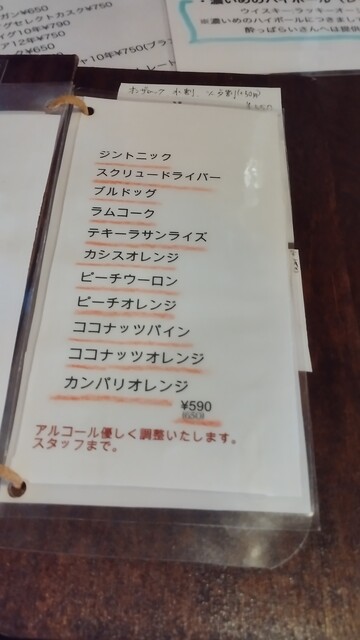 ガン¥650
グセレクトカスク¥750
イグ10年¥790
ア12年¥750
ク¥650
ヤ10年¥750(ブラ
トレート
ウイスキーラッキーオー
※濃いめのハイボールにつきまして
酔っぱらいさんへは提供
ジントニック
スクリュードライバー
ブルドッグ
ラムコーク
テキーラサンライズ
カシスオレンジ
ピーチウーロン
ピーチオレンジ
ココナッツパイン
ココナッツオレンジ
カンパリオレンジ
¥590
アルコール優しく調整いたします。
スタッフまで。